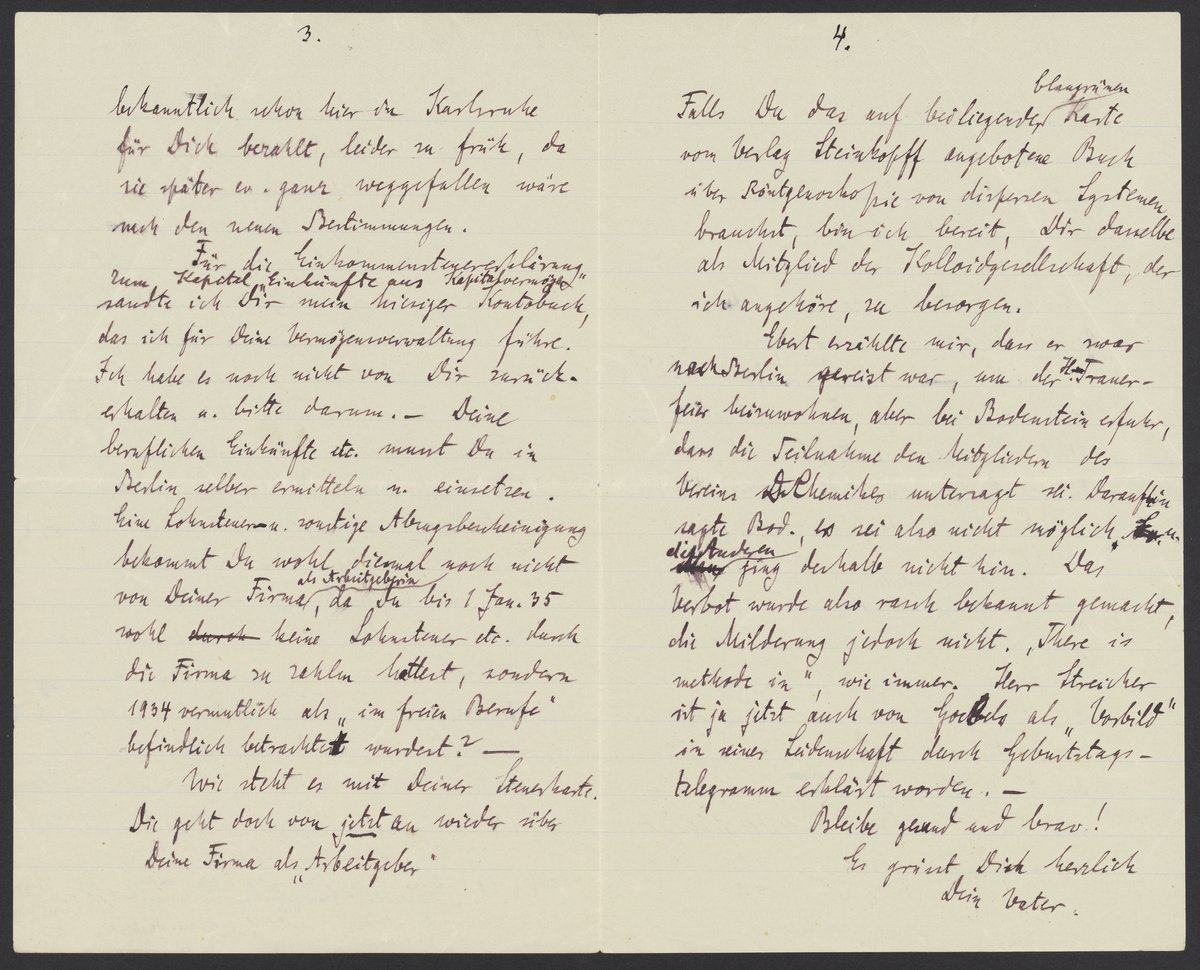 3.
bekanntlich schon hier in Karlsruhe
für Dich bezahlt, leider zu früh, da
sie später ev. ganz weggefallen wäre
nach den neuen Bestimmungen.
Für die Einkommensteuererklärung
zum Kapitel „Einkünfte aus Kapitalvermögen“
sandte ich Dir mein hiesiger Kontobuch,
das ich für Deine Vermögensverwaltung führe.
Ich habe es noch nicht von Dir zurück-
erhalten u. bitte darum. — Deine
beruflichen Einkünfte etc. musst Du in
Berlin selber ermitteln u. einsetzen.
Eine Lohnsteuer- u. sonstige Abzugsbescheinigung
bekommst Du wohl diesmal noch nicht
als Arbeitgeberin
von Deiner Firma, da Du bis 1 Jan. 35
wohl durch keine Lohnsteuer etc. durch
die Firma zu zahlen hattest, sondern
1934 vermutlich als „im freien Berufe“
befindlich betrachtet wurdest? —
Wie steht es mit Deiner Steuerkarte.
Die geht doch von jetzt an wieder über
Deine Firma als „Arbeitgeber“
4.
blaugrünen
Falls Du das auf beiliegender Karte
vom Verlag Steinkopff angebotene Buch
über Röntgenoskopie von dispersen Systemen
brauchst, bin ich bereit, Dir dasselbe
als Mitglied der Kolloidgesellschaft, der
ich angehöre, zu besorgen.
Ebert erzählte mir, dass er zwar
nach Berlin gereist war, um der H. Trauer-
feier beizuwohnen, aber bei Bodenstein erfuhr,
dass die Teilnahme den Mitgliedern des
Vereins D. Chemiker untersagt sei. Daraufhin
sagte Bod., es sei also nicht möglich, u.
die Anderen
ging deshalb nicht hin. Das
Verbot wurde also rasch bekannt gemacht,
die Milderung jedoch nicht. „There is
methode in“, wie immer. Herr Streicher
ist ja jetzt auch von Goebels als „Vorbild“
in seiner Leidenschaft durch Geburtstags-
telegramm erklärt worden. —
Bleibe gesund und brav!
Es grüsst Dich herzlich
Dein Vater.